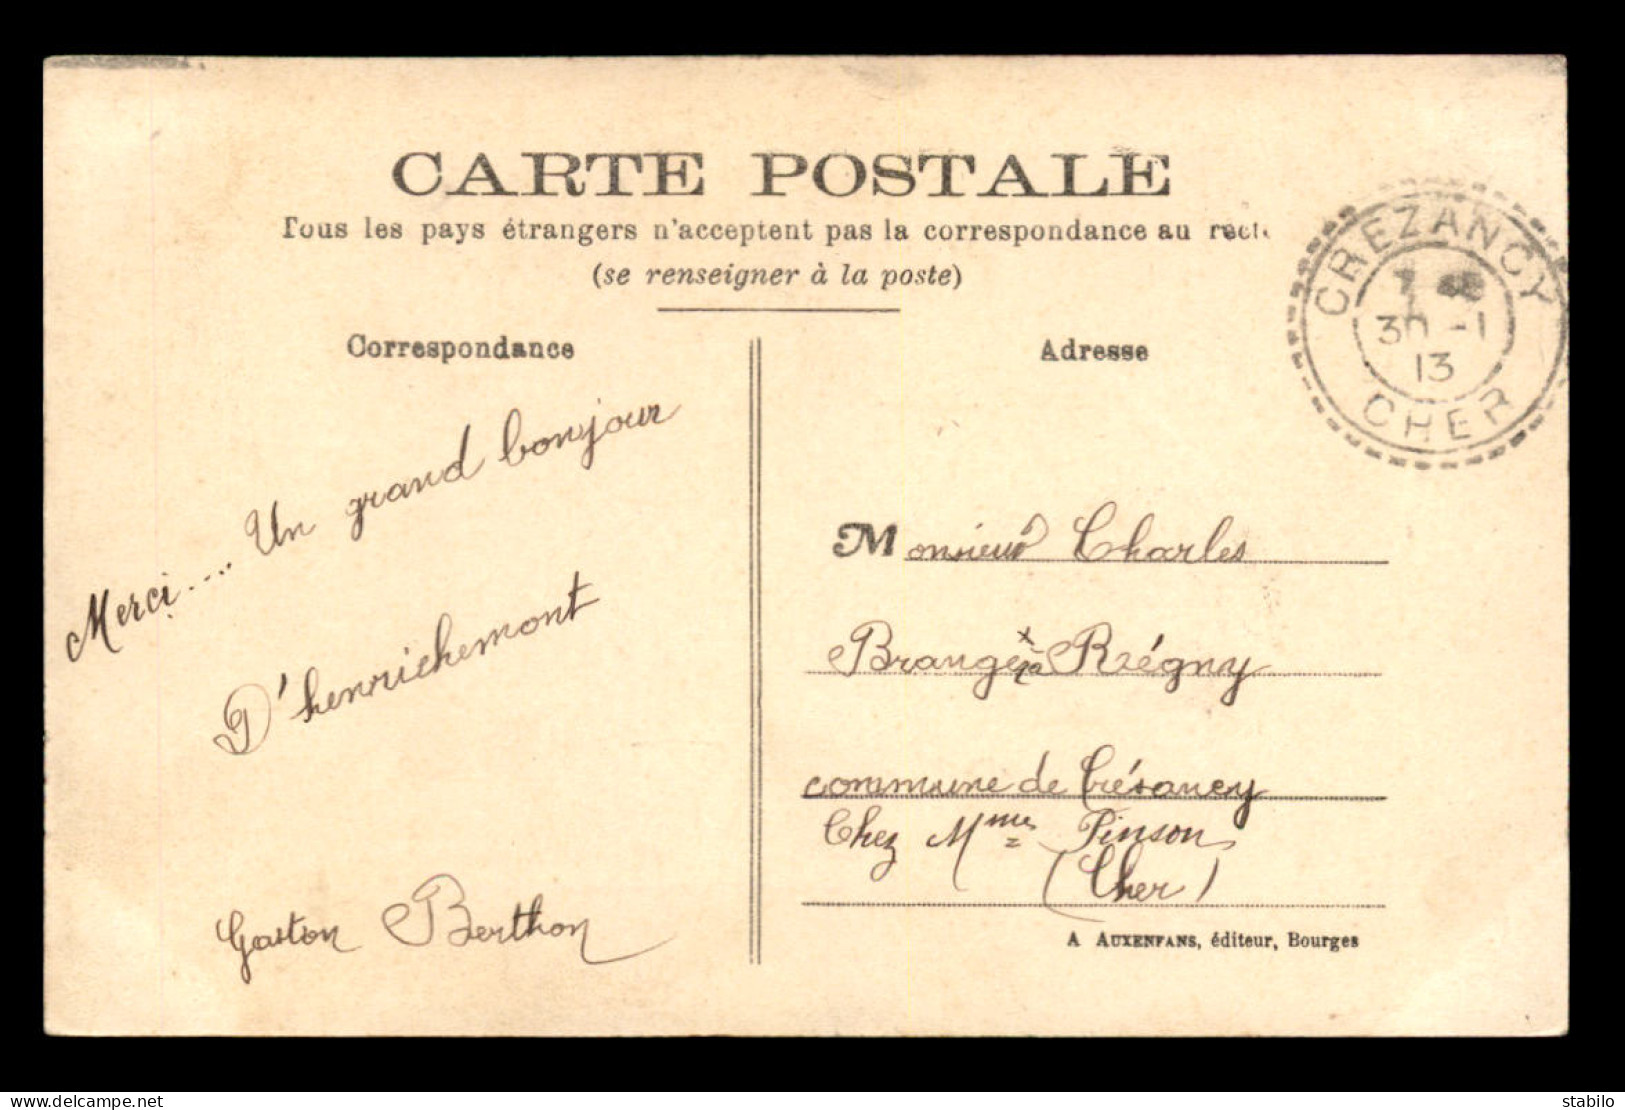 CARTE POSTALE
Tous les pays étrangers n'acceptent pas la correspondance au recto
(se renseigner à la poste)
Correspondance
Merci.... Un grand bonjour
D'henrichemont
Gaston Berthon
Adresse
CREZANCY
30 -1
13
CHER
Monsieur Charles
Branger à Régny
commune de Crésancy
Chez Mme Pinson
(Cher)
A AUXENFANS, éditeur, Bourges
www.delcampe.net
stabilo